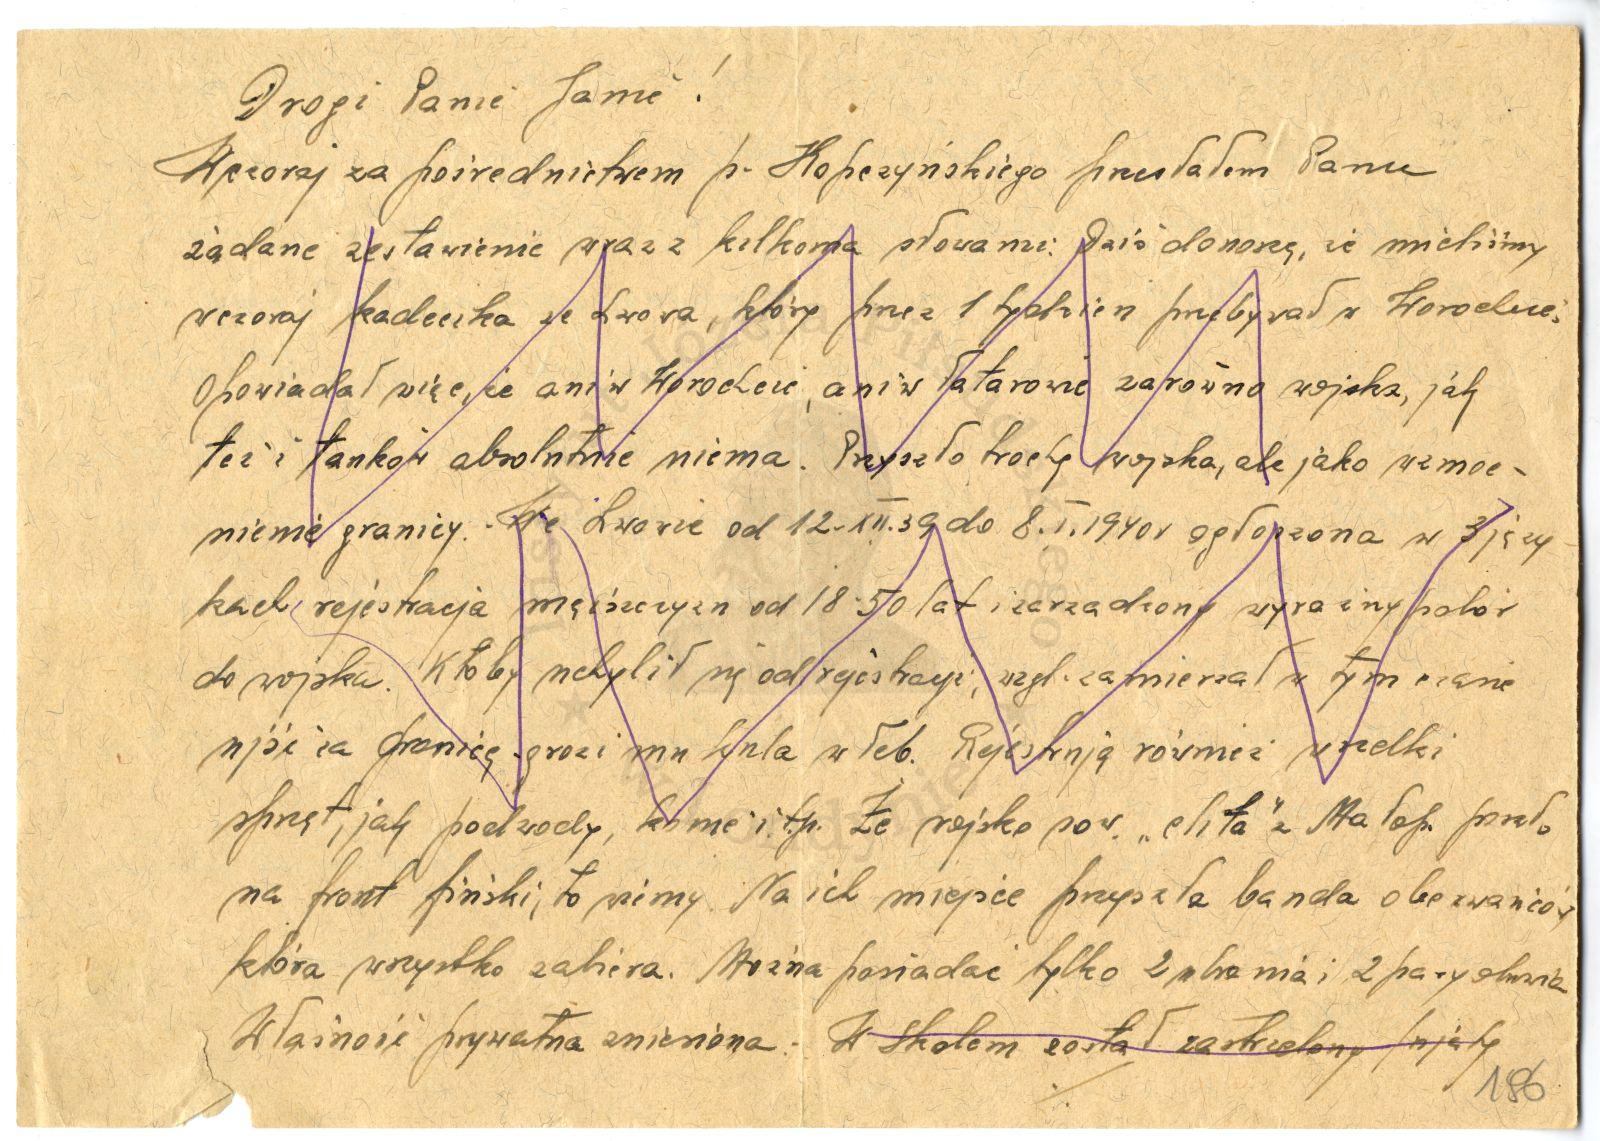 Drogi Panie Janie!
Wczoraj za pośrednictwem p. Kopczyńskiego przesłałem Panu
żądane zestawienie wraz z kilkoma słowami. Dziś donoszę, że mieliśmy
wczoraj kadecika ze Lwowa, który przez 1 tydzień przebywał w Worochcie.
Opowiadał więc, że ani w Worochcie, ani w Tatarowie zarówno wojska, jak
też i tanków absolutnie niema. Przyszło trochę wojska, ale jako wzmoc-
nienie granicy. - We Lwowie od 12.XII.39 do 8.I.1940r ogłoszona w 3 języ
kach rejestracja mężczyzn od 18-50 lat i zarządzony wyraźny pobór
do wojska. Ktoby uchylił się od rejestracji, wzgl. zamierzał w tym czasie
ujść za granicę - grozi mu kula w łeb. Rejestrują również wszelki
sprzęt, jak podwody, konie i t.p. Że wojsko sow. „elita" z Małop. poszło
na front fiński, to wiemy. Na ich miejsce przyszła banda oberwańców
która wszystko zabiera. Można posiadać tylko 2 ubrania i 2 pary obuwia
Własność prywatna zniesiona. - W Skolem został zastrzelony
186
Józefa Piłsudskiego
w Londynie